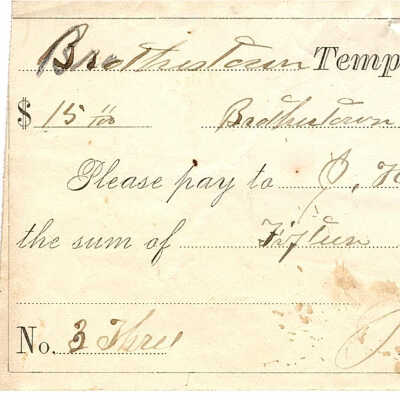 Brothertown Temp
$ 15 00/100 Brothertown
Please pay to J. H
the sum of Fifteen
No. 3 Three